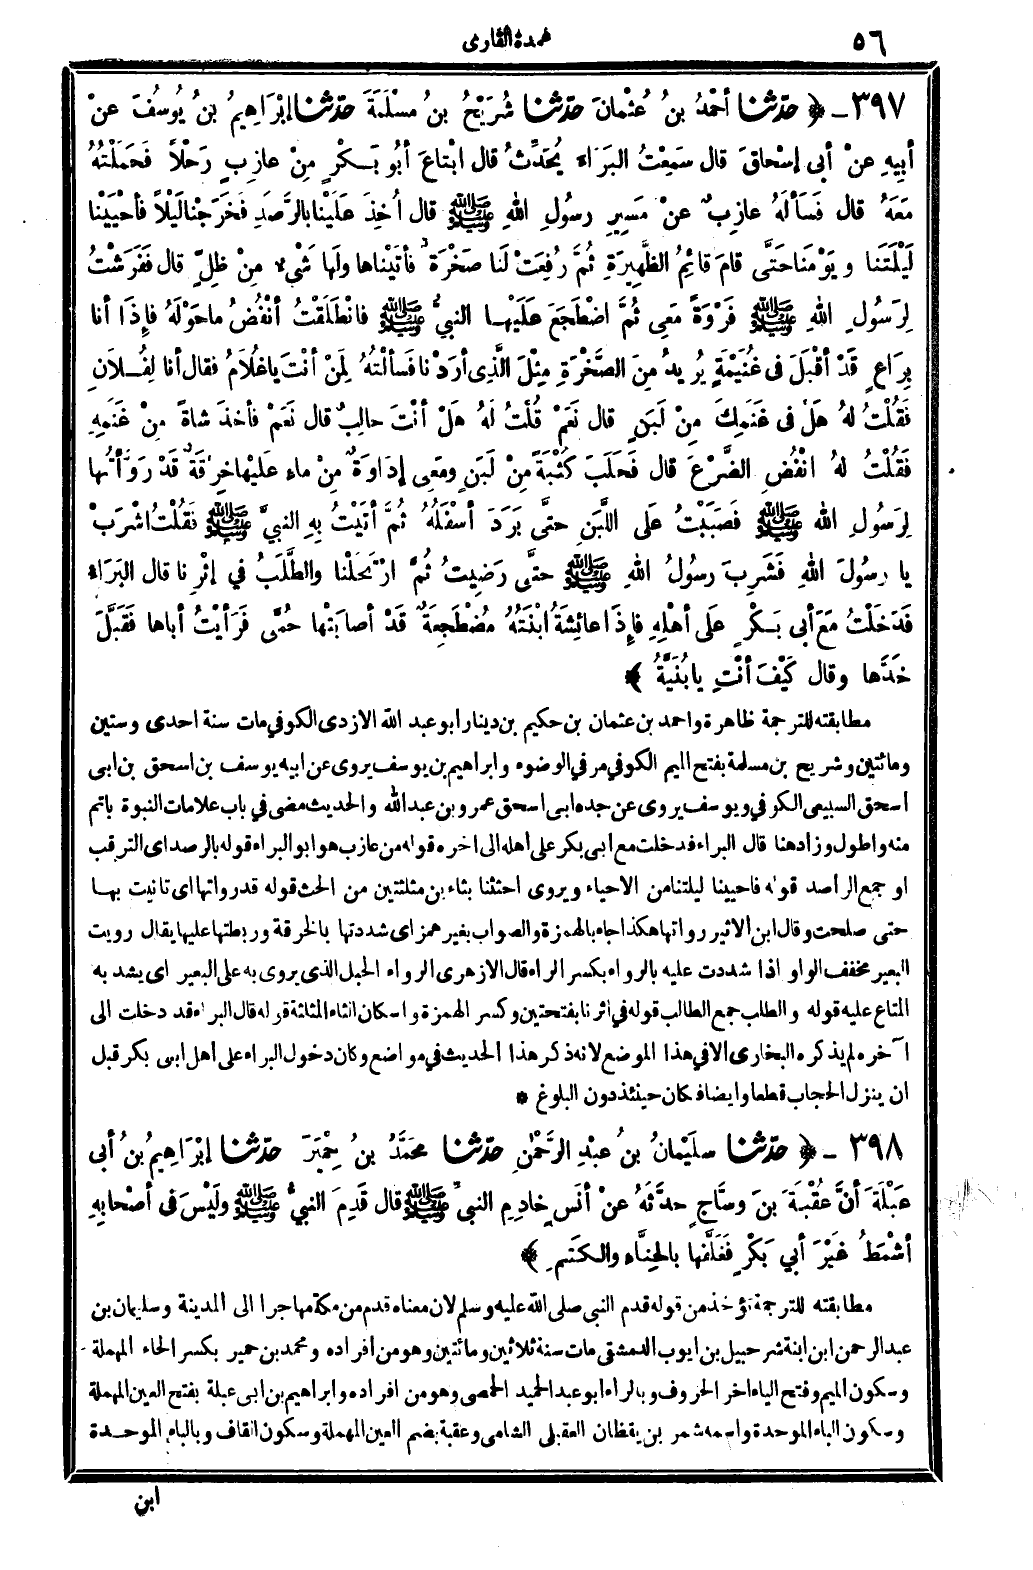 ٥٦
عمدة القارى
٣٩٧ ـ ﴿ حدّثنا أحْمَدُ بنُ عُثْمانَ حدّثنا شُرَيْحُ بنُ مَسْلَمَةَ حدّثنا إبْرَاهِيمُ بنُ يُوسُفَ عنْ
أبِيهِ عنْ أبى إسْحاقَ قال سَمِعْتُ البَرَاءَ يُحَدِّثُ قال ابْتاعَ أبُو بَكْرٍ مِنْ عازِبٍ رَحْلاً فَحَمَلْتُهُ
مَعَهُ قال فَسَألَهُ عازِبٌ عنْ مَسِيرِ رسُولِ اللهِ ﷺ قال أُخِذَ عَلَيْنا بالرَّصَدِ فَخَرَجْنا لَيْلاً فأحْيَيْنا
لَيْلَتَنا ويَوْمَنا حَتَّى قامَ قائِمُ الظَّهِيرَةِ ثُمَّ رُفِعَتْ لَنا صَخْرَةٌ فأتَيْناها ولَها شَيْءٌ مِنْ ظِلٍّ قال فَفَرَشْتُ
لِرَسُولِ اللهِ ﷺ فَرْوَةً مَعِى ثُمَّ اضْطَجَعَ عَلَيْها النبيُّ ﷺ فانْطَلَقْتُ أنْفُضُ ما حَوْلَهُ فإذَا أنا
بِرَاعٍ قَدْ أقْبَلَ فى غُنَيْمَةٍ يُرِيدُ مِنَ الصَّخْرَةِ مِثْلَ الَّذِى أرَدْنا فَسألْتُهُ لِمَنْ أنْتَ ياغُلَامُ فقال أنا لِفُلَانٍ
فَقُلْتُ لهُ هَلْ فى غَنَمِكَ مِنْ لَبَنٍ قال نَعَمْ قُلْتُ لهُ هَلْ أنْتَ حالِبٌ قال نَعَمْ فأخذَ شاةً مِنْ غَنَمِهِ
فَقُلْتُ لهُ انْفُضِ الضَّرْعَ قال فَحَلَبَ كُثْبَةً مِنْ لَبَنٍ ومَعِى إدَاوَةٌ مِنْ ماءٍ عَلَيْها خِرْقَةٌ قَدْ رَوَّأتُها
لِرَسُولِ اللهِ ﷺ فَصَبَبْتُ عَلَى اللَّبَنِ حتَّى بَرَدَ أسْفَلُهُ ثُمَّ أتَيْتُ بِهِ النبيَّ ﷺ فَقُلْتُ اشْرَبْ
يا رسُولَ اللهِ فَشَرِبَ رسُولُ اللهِ ﷺ حتَّى رَضِيتُ ثُمَّ ارْتَحَلْنا والطَّلَبُ في إثْرِنا قال البَرَاءُ
فَدَخَلْتُ مَعَ أبى بَكْرٍ عَلَى أهْلِهِ فإذَا عائِشَةُ ابْنَتُهُ مُضْطَجِعَةٌ قَدْ أصابَتْها حُمَّى فَرَأيْتُ أباها فَقَبَّلَ
خَدَّها وقال كَيْفَ أنْتِ يابُنَيَّةُ ﴾
مطابقته للترجمة ظاهرة واحمد بن عثمان بن حكيم بن دينار أبو عبد الله الازدى الكوفي مات سنة احدى وستين
ومائتين وشريح بن مسلمة بفتح الميم الكوفي مر في الوضوء وابراهيم بن يوسف يروى عن ابيه يوسف بن اسحق بن ابى
اسحق السبيعى الكوفي ويوسف يروى عن جده ابى اسحق عمرو بن عبد الله والحديث مضى في باب علامات النبوة باتم
منه واطول وزاد هنا قال البراء فدخلت مع ابى بكر على أهله الى اخره قوله من عازب هو ابو البراء قوله بالرصد اى الترقب
او جمع الراصد قوله فاحيينا ليلتنا من الاحياء ويروى احثثنا بثاء بن مثلثتين من الحث قوله قدرواتها اى تانيت بها
حتى صلحت وقال ابن الاثير رواتها هكذا جاء بالهمزة والصواب بغير همز اى شددتها بالخرقة وربطتها عليها يقال رويت
البعير مخفف الواو اذا شددت عليه بالرواء بكسر الراء قال الازهرى الرواء الحبل الذى يروى به على البعير اى يشد به
المتاع عليه قوله والطلب جمع الطالب قوله في اثرنا بفتحتين وكسر الهمزة واسكان الثاء المثلثة قوله قال البراء قد دخلت الى
آخره لم يذكره البخارى الا في هذا الموضع لانه ذكر هذا الحديث في مواضع وكان دخول البراء على اهل ابى بكر قبل
ان ينزل الحجاب قطعا وايضا فكان حينئذ دون البلوغ *
٣٩٨ ـ ﴿ حدّثنا سلَيْمانُ بنُ عبْدِ الرَّحْمٰنِ حدّثنا محَمَّدُ بنُ حِمْيَرَ حدّثنا إبْرَاهِيمُ بنُ أبى
عَبْلَةَ أنَّ عُقْبَةَ بنَ وسَّاجٍ حدثَهُ عنْ أنَسٍ خادِمِ النبيِّ ﷺ قال قَدِمَ النبيُّ ﷺ ولَيْسَ فى أصْحابِهِ
أشْمَطُ غَيْرَ أبي بَكْرٍ فَغَلَّفَها بالحِنَّاءِ والكَتَمِ ﴾
مطابقته للترجمة تؤخذ من قوله قدم النبي صلى الله عليه وسلم لان معناه قدم من مكة مهاجرا الى المدينة وسليمان بن
عبد الرحمن ابن ابنة شرحبيل بن ايوب الدمشقي مات سنة ثلاثين ومائتين وهو من افراده ومحمد بن حمير بكسر الحاء المهملة
وسكون الميم وفتح الياء اخر الحروف وبالراء ابو عبد الحميد الحمصى وهو من افراده وابراهيم بن ابى عبلة بفتح العين المهملة
وسكون الباء الموحدة واسمه شمر بن يقظان العقيلى الشامى وعقبة بضم العين المهملة وسكون القاف وبالباء الموحدة
ابن